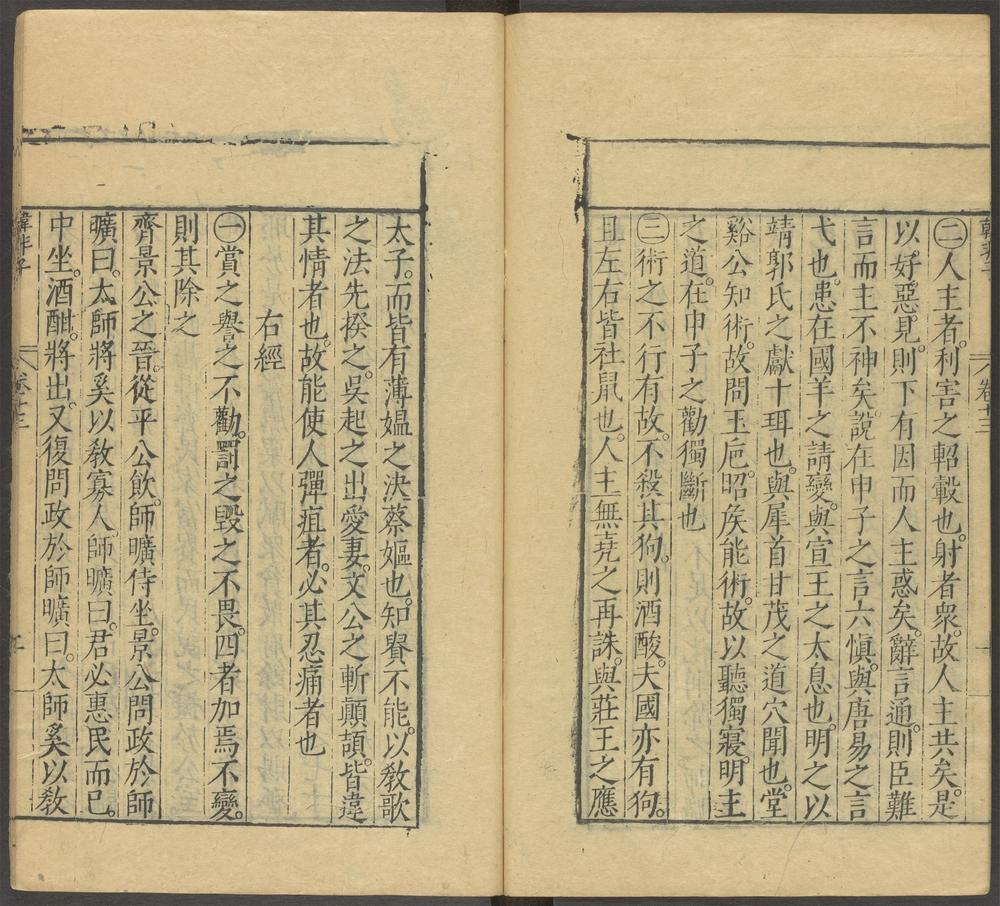 韓非子 卷十三
㊁人主者。利害之軺轂也。射者衆。故人主共矣。是
以好。惡見。則下有因而人主惑矣。辭言通。則臣難
言而主不神矣。說在申子之言六慎。與唐易之言
弋也。患在國羊之請變。與宣王之太息也。明之以
靖郭氏之獻十珥也。與犀首甘茂之道穴聞也。堂
谿公知術。故問玉巵。昭矦能術。故以聽獨寢。明主
之道。在申子之勸獨斷也
㊂術之不行有故。不殺其狗。則酒酸。夫國亦有狗。
且左右皆社鼠也。人主無堯之再誅。與莊王之應
太子。而皆有薄媪之決蔡嫗也。知貴不能。以教歌
之法先揆之。吳起之出愛妻。文公之斬顛頡。皆違
其情者也。故能使人彈疽者。必其忍痛者也
右經
㊀賞之譽之不勸。罰之毀之不畏。四者加焉不變。
則其除之
齊景公之晉。從平公飲。師曠侍坐。景公問政於師
曠曰。太師將奚以教寡人。師曠曰。君必惠民而已。
中坐。酒酣。將出。又復問政於師曠曰。太師奚以教
韓非子 卷十三